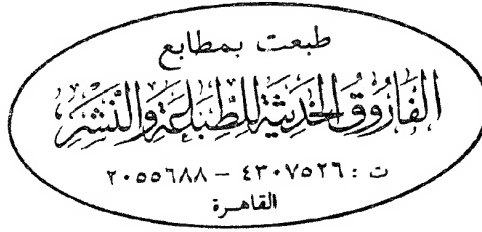 طبعت بمطابع
الفَارُوقُ الحَدِيثَة لِلطِّبَاعَةِ وَالنَّشِر
ت : ٤٣٠٧٥٢٦ – ٢٠٥٥٦٨٨
القاهرة